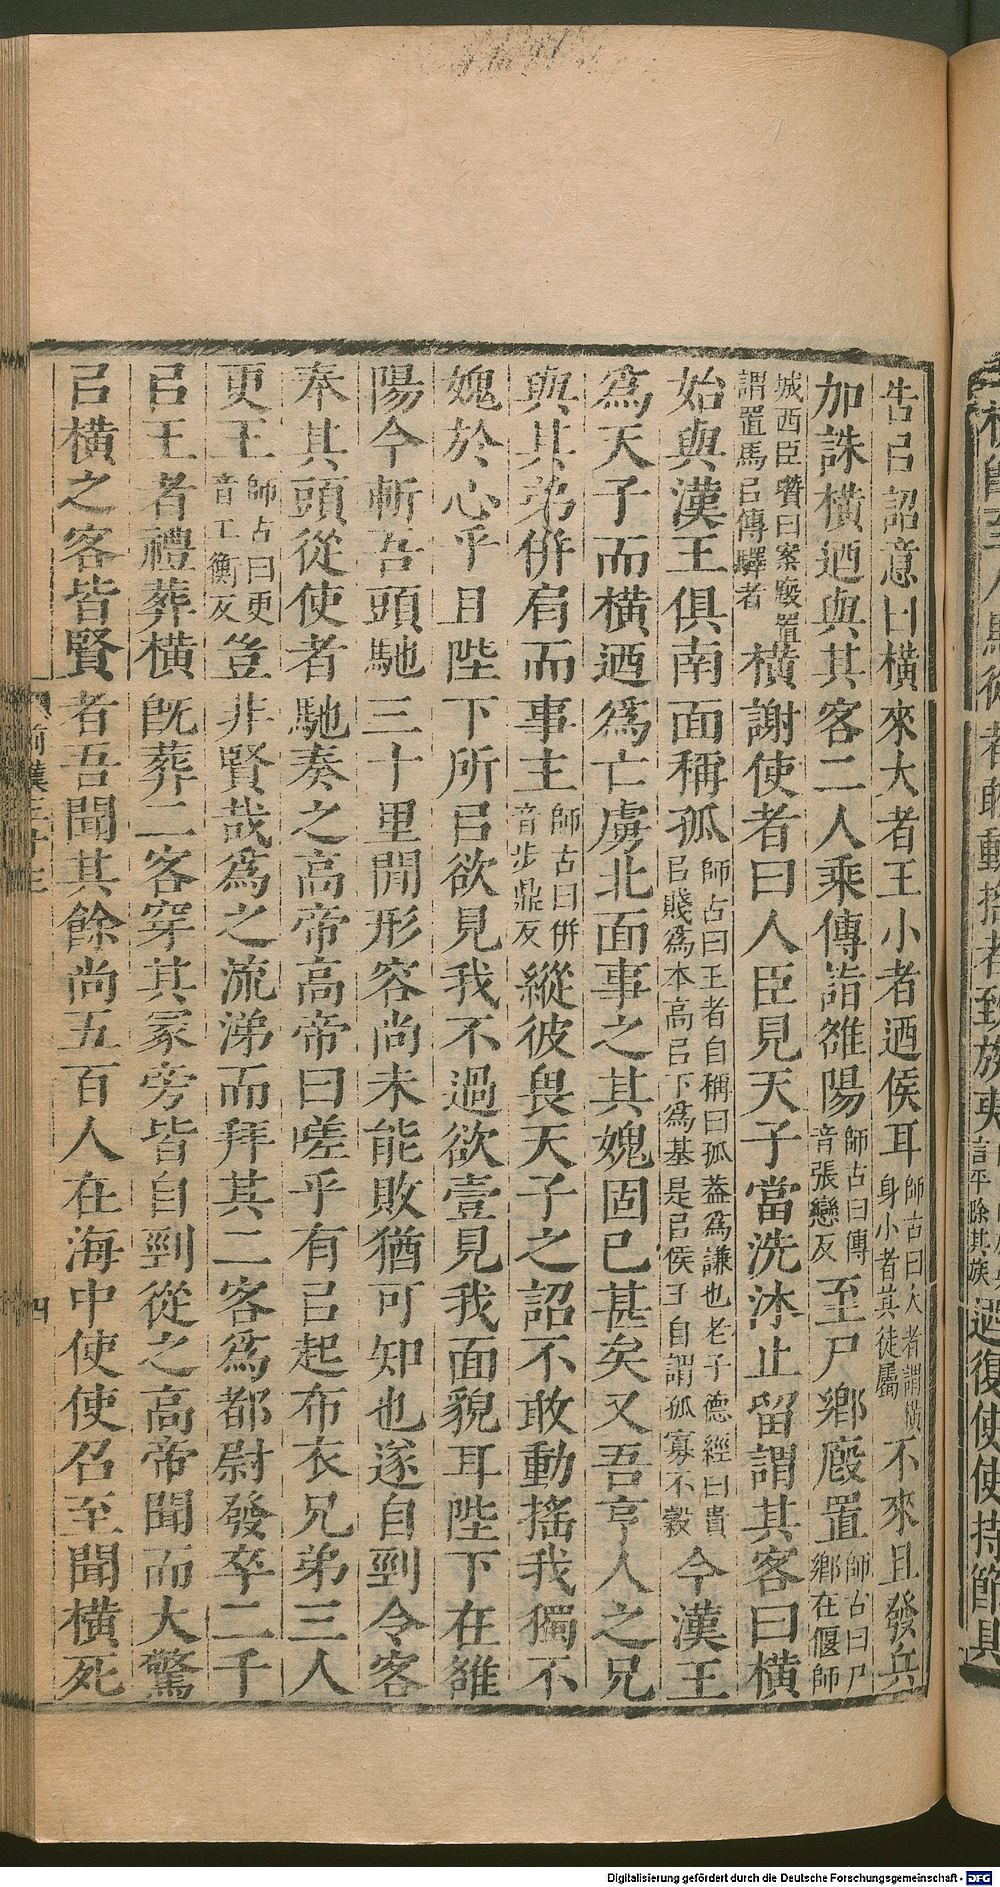 告㠯詔意曰橫來大者王小者迺侯耳師古曰大者謂橫身小者其徒屬不來且發兵
加誅橫迺與其客二人乘傳詣雒陽師古曰傳音張戀反至尸鄉廄置師古曰尸鄉在偃師
城西臣瓚曰案廄置謂置馬㠯傳驛者橫謝使者曰人臣見天子當洗沐止留謂其客曰橫
始與漢王俱南面稱孤師古曰王者自稱曰孤蓋為謙也老子德經曰貴㠯賤為本高㠯下為基是㠯侯王自謂孤寡不穀今漢王
為天子而橫迺為亡虜北面事之其媿固已甚矣又吾亨人之兄
與其弟併肩而事主師古曰併音步鼎反縱彼畏天子之詔不敢動搖我獨不
媿於心乎且陛下所㠯欲見我不過欲壹見我面貌耳陛下在雒
陽今斬吾頭馳三十里閒形容尚未能敗猶可知也遂自剄令客
奉其頭從使者馳奏之高帝高帝曰嗟乎有㠯起布衣兄弟三人
更王師古曰更音工衡反豈非賢哉為之流涕而拜其二客為都尉發卒二千
㠯王者禮葬橫既葬二客穿其冢旁皆自剄從之高帝聞而大驚
㠯橫之客皆賢者吾聞其餘尚五百人在海中使使召至聞橫死
前漢三十三
四
動搖者致族夷
言平除其族
迺復使使持節具
Digitalisierung gefördert durch die Deutsche Forschungsgemeinschaft - DFG